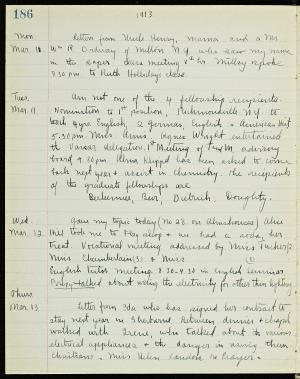 186
1913
Mon. Letter from Uncle Henry, mama and a Mr.
Mar. 10 Wm R. Ordway of Milton N.Y. who saw my name
in the paper. Class meeting
7.30 pm to Ruth Holliday's
Tues. Am not one of the 4 fellowship recipients.
Mar. 11. Nomination to 1st position, Richmondville N.Y. to
teach 4 yrs English, 2 German, English & American hist
5.30 pm Miss Agnes Wright entertained
the Vassar delegation. 1st Meeting of advisory
board 9.30 pm. Alma Klippel has been asked to come
back next year & assist in chemistry. The recipients
of the graduate fellowships are
Deitrich, Doughty.
Wed. Gave my topic today (No 28 on Almshouses) Alice
Mar. 12. Hill took me to & we had a soda, her
treat. Vocational meeting addressed by Miss
Miss Chamberlain (3) & Miss (1)
English tutor meeting 8.30-9.30 in English Seminar
talked about using the electricity for other than lighting
Thurs.
Mar. 13. Letter from Ida who has signed her contract to
stay next year in Sherburne. Between dinner & chapel
walked with Irene, who talked about the various
electrical appliances & the danger in using them
Miss Helen Landon in Prayers.